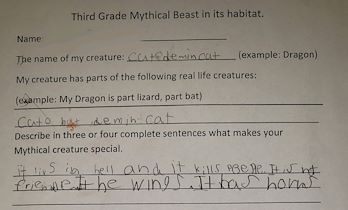 Third Grade Mythical Beast in its habitat.
Name:
The name of my creature: Catedemincat (example: Dragon)
My creature has parts of the following real life creatures:
(example: My Dragon is part lizard, part bat)
Cat bat demin-cat
Describe in three or four complete sentences what makes your
Mythical creature special.
it livs in hell and it kills It is not
It he wins. It has horns